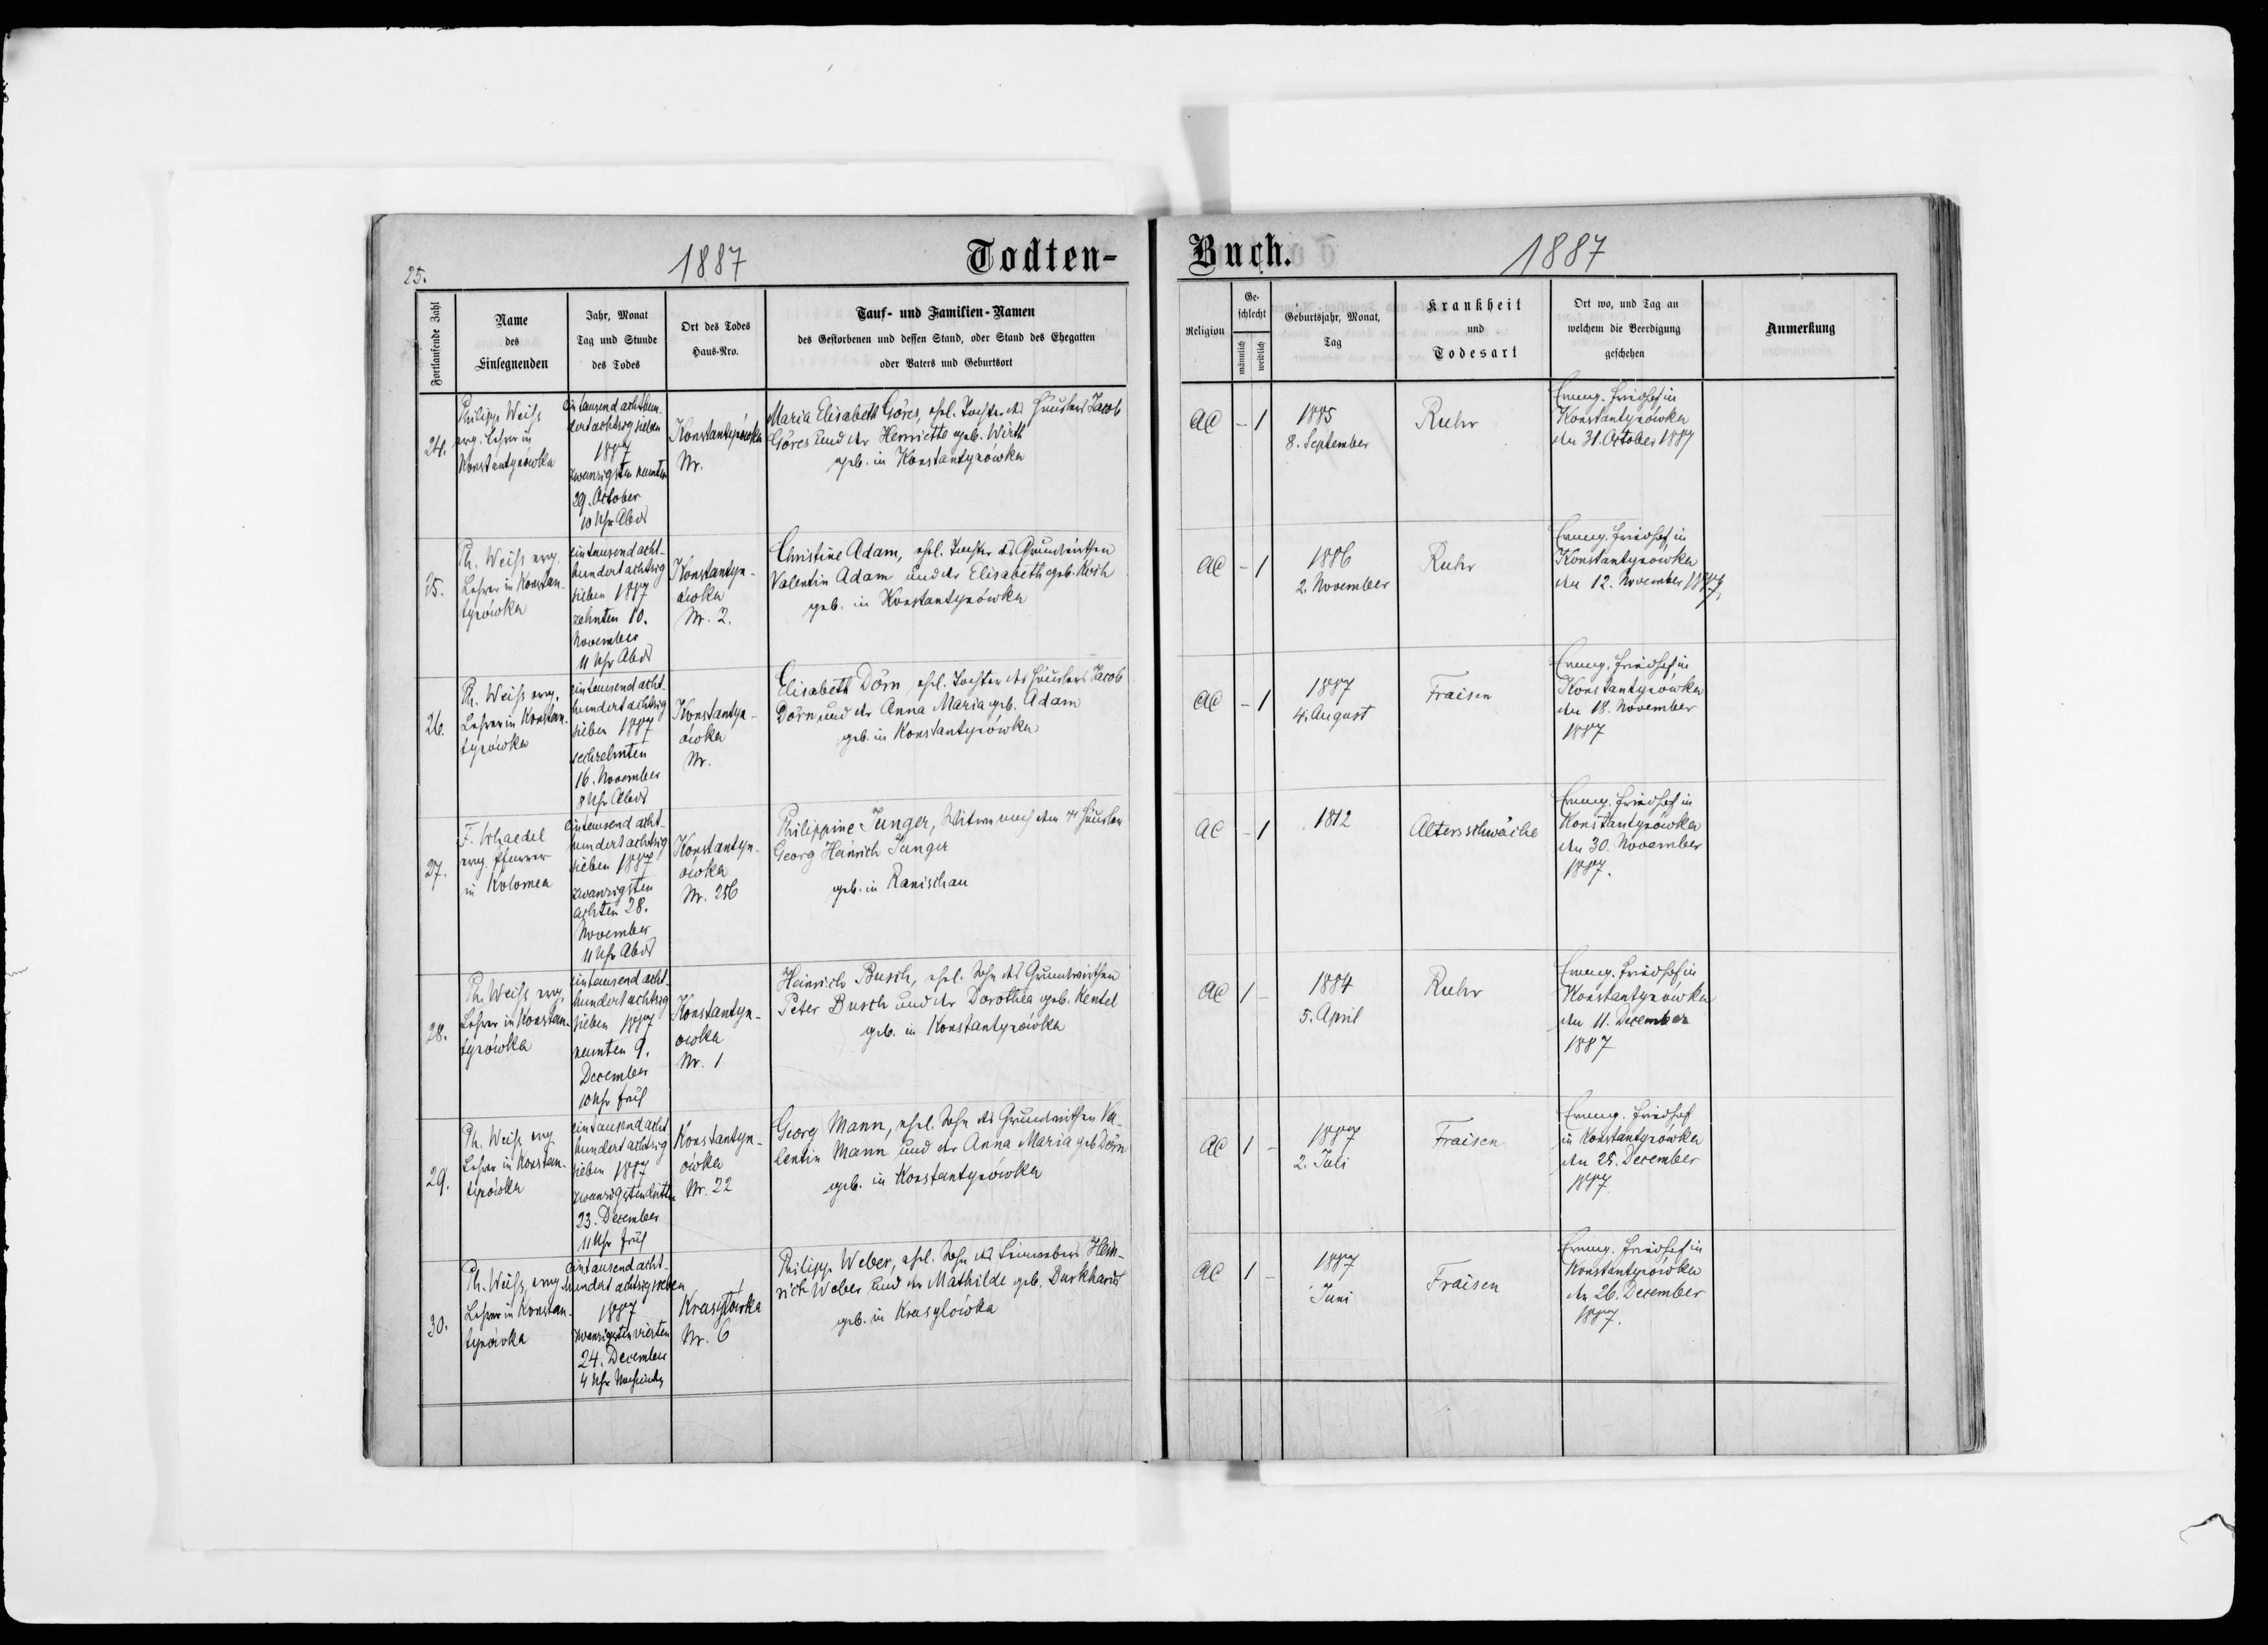 25.
1887
Todten-
Fortlaufende Zahl
Name
des
Einsegnenden
Jahr, Monat
Tag und Stunde
des Todes
Ort des Todes
Haus-Nro.
Tauf- und Familien-Namen
des Gestorbenen und dessen Stand, oder Stand des Ehegatten
oder Vaters und Geburtsort
24.
Philipp Weiss
evg. Lehrer in
Konstantynówka
Eintausend achthun-
dert achtzig sieben
1887
zwanzigsten neunten
29. October
10 Uhr Abds
Konstantynówka
Nr.
Maria Elisabeth Göres, ehel. Tochter des Häuslers Jacob
Göres und der Henriette geb. Wirth
geb. in Konstantynówka
25.
Ph. Weiss evg.
Lehrer in Konstan-
tynówka
eintausend acht-
hundert achtzig
sieben 1887
zehnten 10.
November
11 Uhr Abds
Konstantyn-
ówka
Nr. 2.
Christine Adam, ehel. Tochter des Grundwirthen
Valentin Adam und der Elisabeth geb. Koch
geb. in Konstantynówka
26.
Ph. Weiss evg.
Lehrer in Konstan-
tynówka
eintausend acht-
hundert achtzig
sieben 1887
sechzehnten
16. November
8 Uhr Abds
Konstantyn-
ówka
Nr.
Elisabeth Dörn, ehel. Tochter des Häuslers Jacob
Dörn und der Anna Maria geb. Adam
geb. in Konstantynówka
27.
F. Schaedel
evg. Pfarrer
in Kolomea
Eintausend acht-
hundert achtzig
sieben 1887
zwanzigsten
achten 28.
November
11 Uhr Abds
Konstantyn-
ówka
Nr. 256
Philippine Junger, Witwe nach dem Häusler
Georg Heinrich Junger
geb. in Ranischau
28.
Ph. Weiss evg.
Lehrer in Konstan-
tynówka
eintausend acht-
hundert achtzig
sieben 1887
neunten 9.
December
10 Uhr früh
Konstantyn-
ówka
Nr. 1
Heinrich Busch, ehel. Sohn des Grundwirthen
Peter Busch und der Dorothea geb. Kentel
geb. in Konstantynówka
29.
Ph. Weiss evg.
Lehrer in Konstan-
tynówka
eintausend acht-
hundert achtzig
sieben 1887
zwanzigsten dritten
23. December
11 Uhr früh
Konstantyn-
ówka
Nr. 22
Georg Mann, ehel. Sohn des Grundwirthen Va-
lentin Mann und der Anna Maria geb Dörn
geb. in Konstantynówka
30.
Ph. Weiss, evg.
Lehrer in Konstan-
tynówka
Eintausend acht-
hundert achtzig sieben
1887
zwanzigsten vierten
24. December
4 Uhr Nachmittag
Krasylówka
Nr. 6
Philipp Weber, ehel. Sohn des Leinwebers Hein-
rich Weber und der Mathilde geb. Burkhardt
geb. in Krasylówka
Buch.
1887
Religion
Ge-
schlecht
männlich
weiblich
Geburtsjahr, Monat,
Tag
Krankheit
und
Todesart
Ort wo, und Tag an
welchem die Beerdigung
geschehen
Anmerkung
AC - 1
1885
8. September
Ruhr
Evang. Friedhof in
Konstantynówka
den 31. October 1887
AC - 1
1886
2. November
Ruhr
Evang. Friedhof in
Konstantynówka
den 12. November 1887.
AC - 1
1887
4. August
Fraisen
Evang. Friedhof in
Konstantynówka
den 18. November
1887
AC - 1
1812
Altersschwäche
Evang. Friedhof in
Konstantynówka
den 30. November
1887.
AC 1 -
1884
5. April
Ruhr
Evang. Friedhof in
Konstantynówka
den 11. December
1887
AC 1 -
1887
2. Juli
Fraisen
Evang. Friedhof
in Konstantynówka
den 25. December
1887
AC 1 -
1887
Juni
Fraisen
Evang. Friedhof in
Konstantynówka
den 26. December
1887.